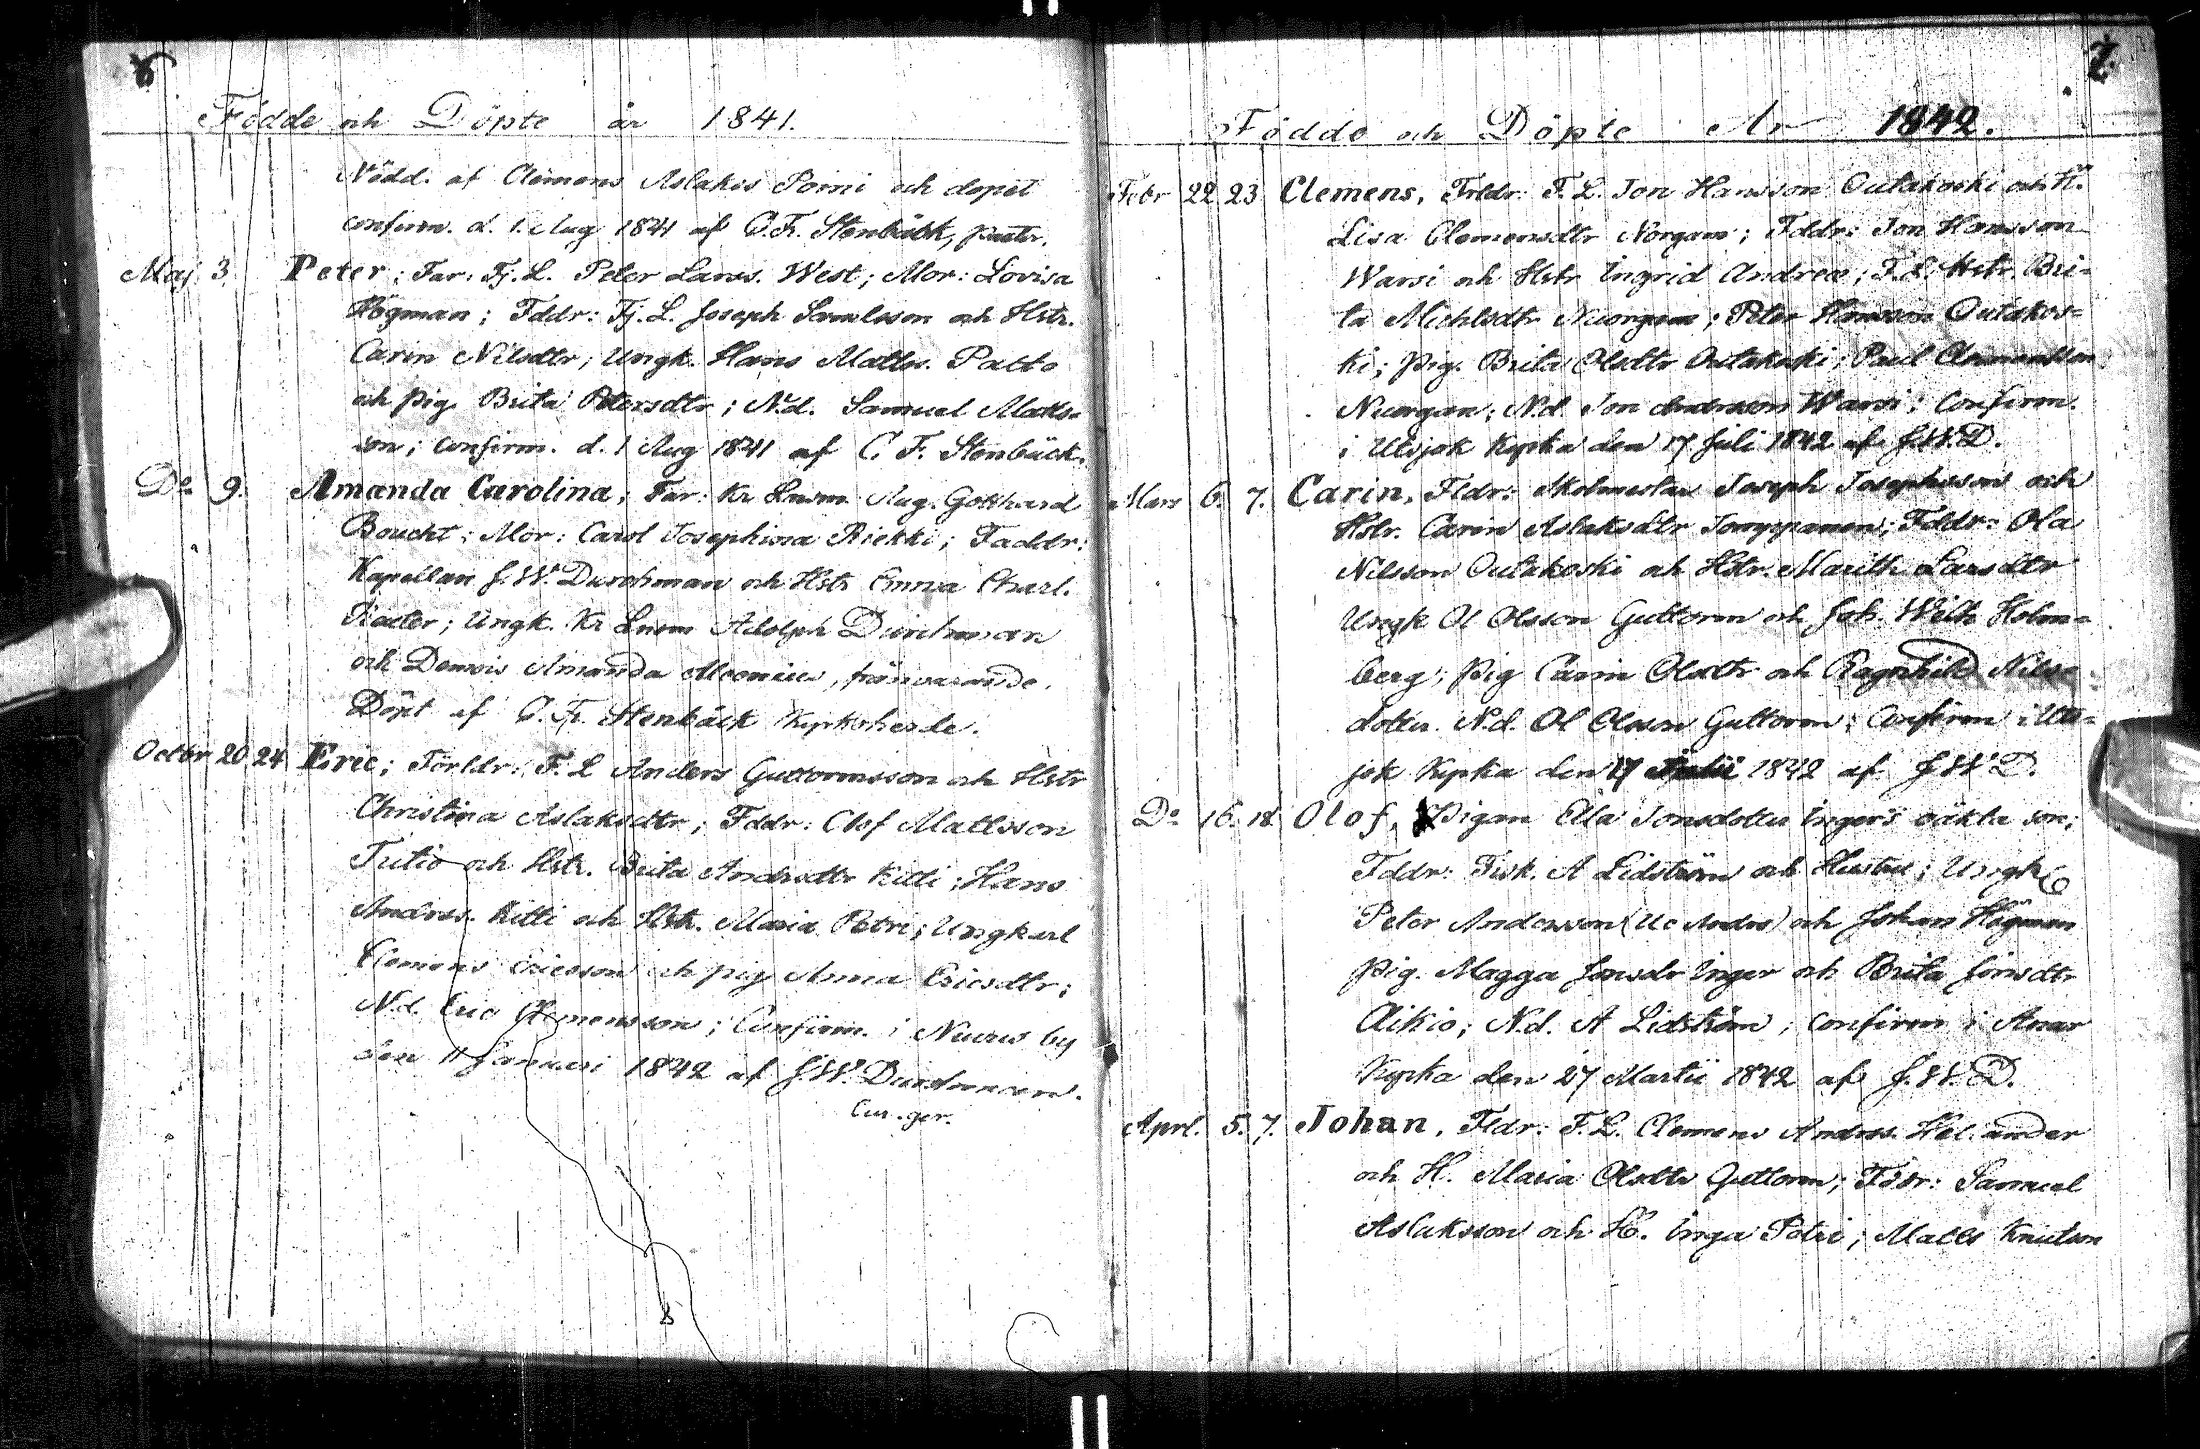 6
Födde och Döpte år 1841.
Nödd. af Clemens Aslakss Porni och dopet
confirm. d. 1. Aug 1841 af C. F. Stenbäck, pastr.
Maj 3. Peter; Far: Fj. L. Peter Larss. West; Mor: Lovisa
Högman; Fddr: Fj. L. Joseph Samlsson och Hstr.
Carin Nilsdtr; Ungk. Hans Matts. Patto
och pig. Brita Petersdtr; N.d. Samuel Matts-
son; confirm. d. 1 Aug 1841 af C. F. Stenbäck.
Do 9. Amanda Carolina; Far: Kr Lnsm. Aug. Gotthard
Boucht; Mor: Carol Josephina Riekki; Faddr:
Kapellan J. W. Durchman och Hstr Emma Charl.
; Ungk. Kr Lnsm Adolph Durchman
och Demois Amanda, frånvarande.
Döpt af C. Fr. Stenbäck Kyrkoherde.
Octbr 20 24 Eric; Förldr: F. L Anders Guttormsson och Hstr
Christina Aslaksdtr; Fddr: Olof Mattsson
Tutio och Hstr. Brita Andrsdtr Kitti; Hans
Andrss. Kitti och Hstr. Maria Petri; Ungkarl
Clemens Ericsson och pig Anna Ericsdtr;
N.d. Eric Clemensson; Confirm. i Nuvus by
den 11 Januari 1842 af J. W. Durchman.
Cur. ger.
7.
Födde och Döpte År 1842.
Febr 22 23 Clemens, Frldr: F. L. Jon Hansson Outakoski och H.
Lisa Clemensdtr Norgam; Fddr: Jon Hansson
Warsi och Hstr Ingrid Andreæ; F. L. Hstr. Bri-
ta Michlsdtr Nuorgam; Peter Hansson Outakos-
ki; pig. Brita Olsdtr Outakoski; Paul Clemensson
Nuorgam; N.d. Jon Andersson Warsi; Confirm.
i Utsjok Kyrka den 17 Juli 1842 af J. W. D.
Mars 6. 7. Carin, Fldr: Skolmestar Joseph Josephsson och
Hstr. Carin Aslaksdtr Jomppanen; Fddr: Ola
Nilsson Outakoski och Hstr. Marith Larsdtr
Ungk Ol Olsson Guttorm och Joh. Wilh Holm-
berg; pig Carin Olsdtr och Ragnhild Nils-
dotter. N.d. Ol Olsson Guttorm; Confirm i Uts-
jok Kyrka den 17 Julii 1842 af J. W. D.
Do 16. 18 Olof, Pigan Ella Jonsdotter Ingers oäkta son;
Fddr: Fisk. A Lidström och Hustru; Ungk
Peter Andersson (Uc Andrs) och Johan Högman
pig. Magga Jonsdr Inger och Brita Jönsdtr
Aikio; N.d. A Lidström; confirm i Anar
Kyrka den 27 Martii 1842 af J. W. D.
Aprl. 5. 7. Johan, Fldr: F. L. Clemens Andrss. Helander
och H. Maria Olsdtr Guttorm; Fddr: Samuel
Aslaksson och H. Inga Petri; Matts Knutson